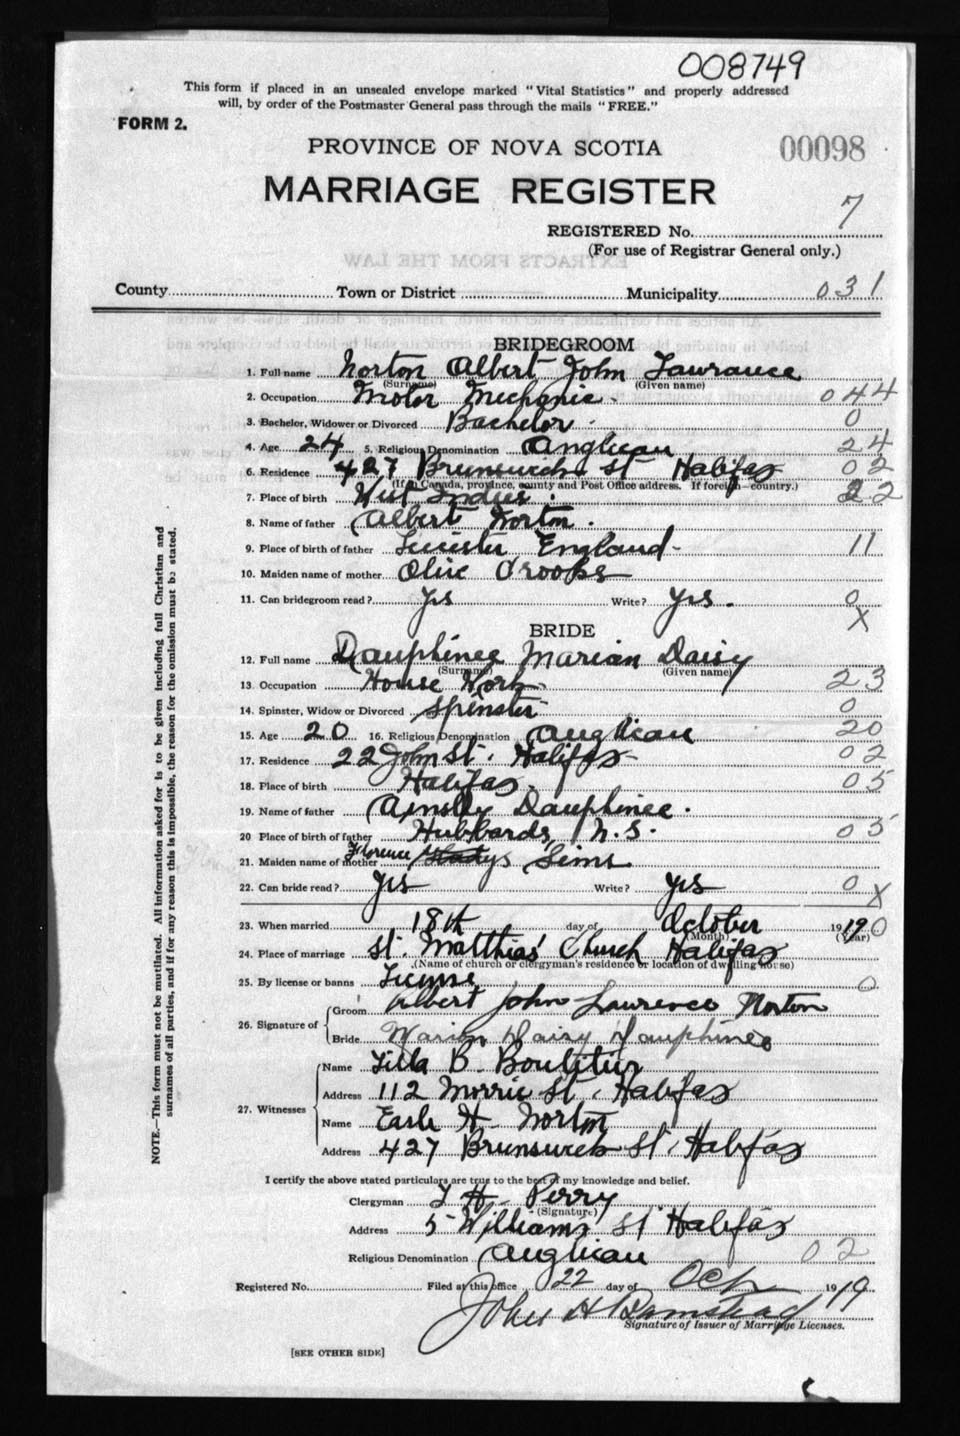 008749
This form if placed in an unsealed envelope marked "Vital Statistics" and properly addressed
will, by order of the Postmaster General pass through the mails "FREE."
FORM 2.
PROVINCE OF NOVA SCOTIA
00098
MARRIAGE REGISTER
7
REGISTERED No.
(For use of Registrar General only.)
EXTRACTS FROM THE LAW
County Town or District Municipality 031
BRIDEGROOM
1. Full name Norton Albert John Lawrance
(Surname) (Given name)
2. Occupation Motor Mechanic. 044
3. Bachelor, Widower or Divorced Bachelor. 0
4. Age 24 5. Religious Denomination Anglican 24
6. Residence 427 Brunswick St Halifax 02
(If in Canada, province, county and Post Office address. If foreign—country.)
7. Place of birth West Indies. 22
8. Name of father Albert Norton.
9. Place of birth of father Leicister England- 11
10. Maiden name of mother Olive Crooks
11. Can bridegroom read? Yes Write? Yes. 0
X
BRIDE
12. Full name Dauphinee Marian Daisy
(Surname) (Given name)
13. Occupation House Work 23
14. Spinster, Widow or Divorced Spinster 0
15. Age 20 16. Religious Denomination Anglican 20
17. Residence 22 John St. Halifax- 02
18. Place of birth Halifax. 05
19. Name of father Ainsley Dauphinee.
20 Place of birth of father Hubbards, N.S. 05
21. Maiden name of mother Florence Gladys Seims
22. Can bride read? Yes Write? Yes 0 X
23. When married 18th day of October 1919 0
(Month) (Year)
24. Place of marriage St. Matthias' Church Halifax
(Name of church or clergyman's residence or location of dwelling house)
25. By license or banns License 0
26. Signature of Groom Albert John Lawrence Norton
Bride Marian Daisy Dauphinee
27. Witnesses Name B.
Address 112 Morris St. Halifax
Name Earle H. Norton
Address 427 Brunswick St. Halifax
I certify the above stated particulars are true to the best of my knowledge and belief.
Clergyman T H. Perry
(Signature)
Address 5 Williams St Halifax
Religious Denomination Anglican 02
Registered No. Filed at this office 22 day of Oct 1919
John H
Signature of Issuer of Marriage Licenses.
[SEE OTHER SIDE]
NOTE.—This form must not be mutilated. All information asked for is to be given including full Christian and
surnames of all parties, and if for any reason this is impossible, the reason for the omission must be stated.